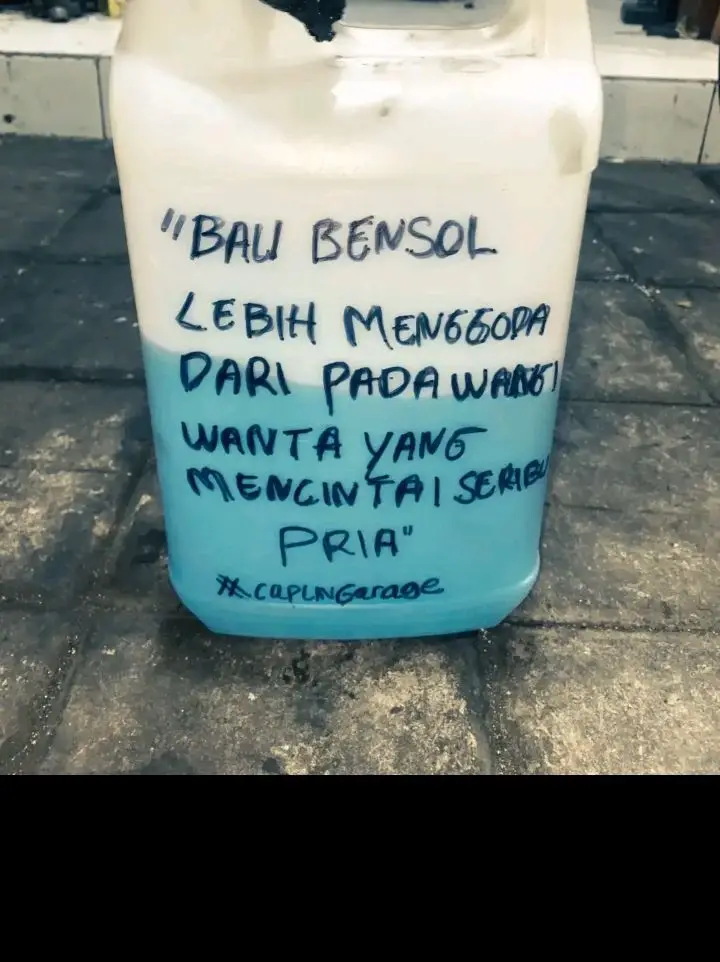 "BAU BENSOL
LEBIH MENGGODA
DARI PADA WANGI
WANTA YANG
MENCINTAI SERIBU
PRIA"
#CAPLINGarage